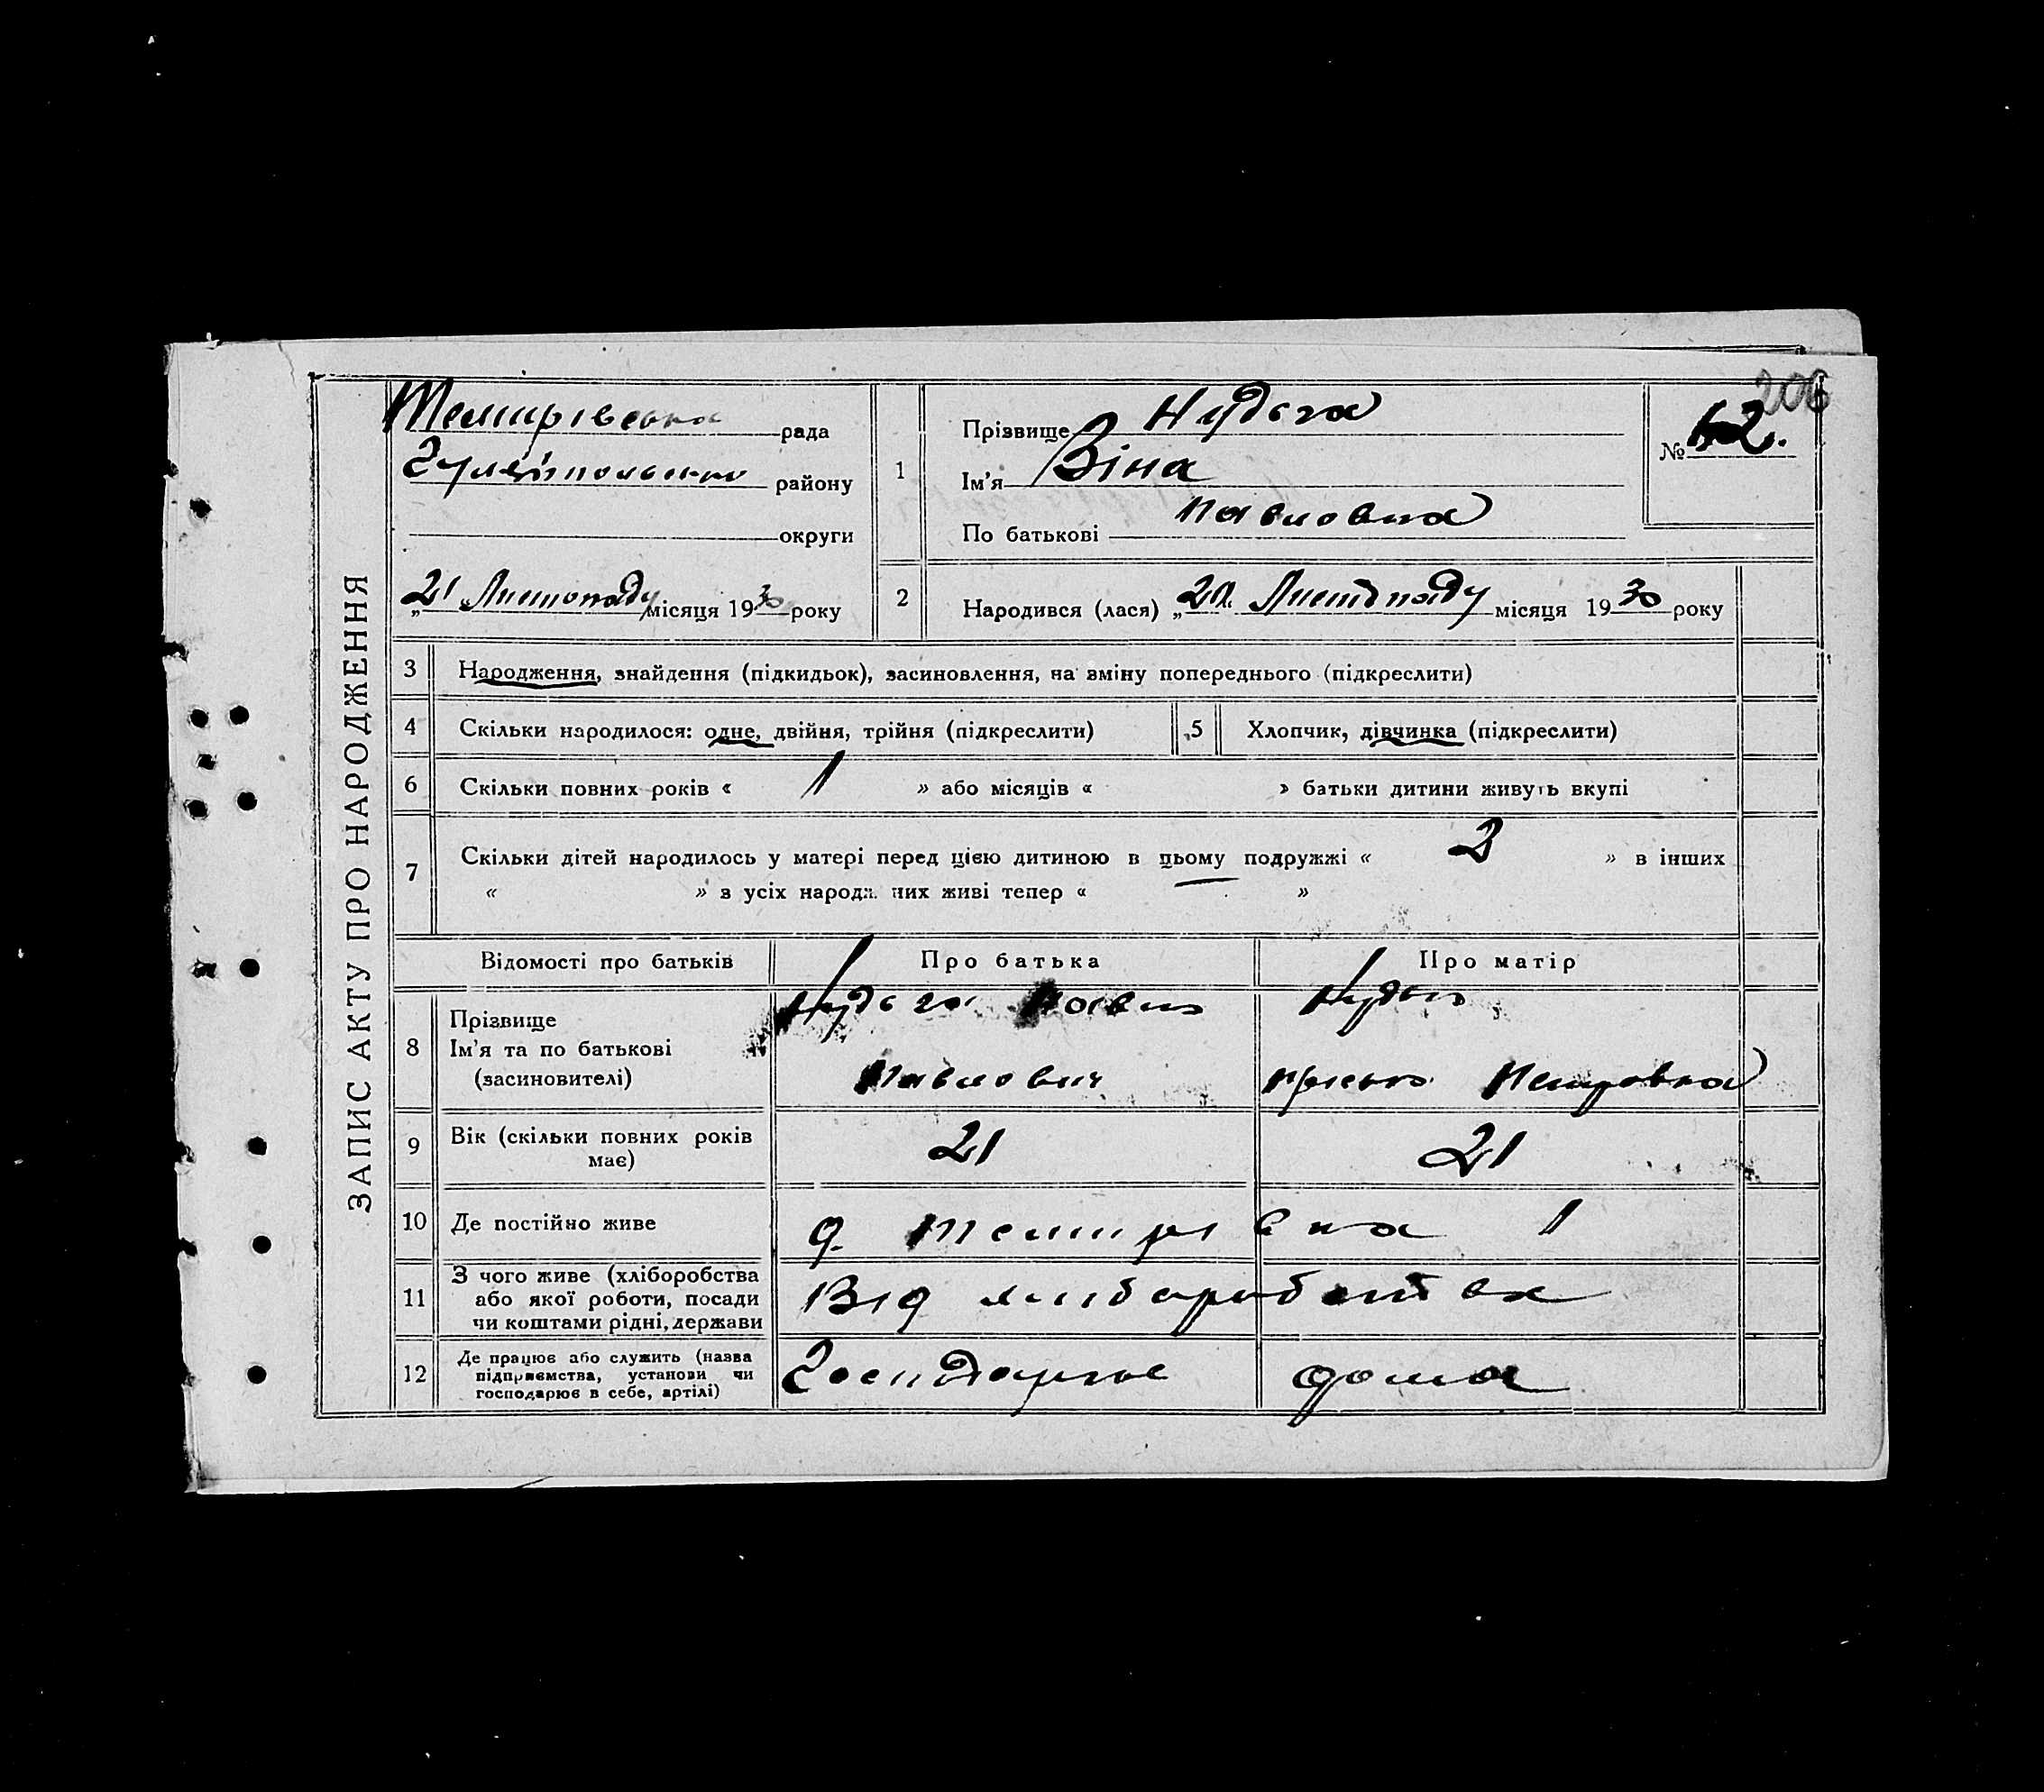 206
ЗАПИС АКТУ ПРО НАРОДЖЕННЯ
Темирівська рада
Гуляйпольсько району
округи
„21 Листопаду місяця 1930 року
1
Прізвище Нудьга
Ім'я Зіна
По батькові Павловна
№ 42.
2
Народився (лася) „20 Листопаду місяця 1930 року
3 Народження, знайдення (підкидьок), засиновлення, на зміну попереднього (підкреслити)
4 Скільки народилося: одне, двійня, трійня (підкреслити) 5 Хлопчик, дівчинка (підкреслити)
6 Скільки повних років « 1 » або місяців « » батьки дитини живуть вкупі
7 Скільки дітей народилось у матері перед цією дитиною в цьому подружжі « 2 » в інших
« » з усіх народж. них живі тепер « »
Відомості про батьків Про батька Про матір
8 Прізвище Нудьга Павло Нудьга
Ім'я та по батькові
(засиновителі) Павлович Петровна
9 Вік (скільки повних років 21 21
має)
10 Де постійно живе с. Темирівка 1
11 З чого живе (хліборобства
або якої роботи, посади Від хліборобства
чи коштами рідні, держави
12 Де працює або служить (назва
підприємства, установи чи дома
господарює в себе, артілі)